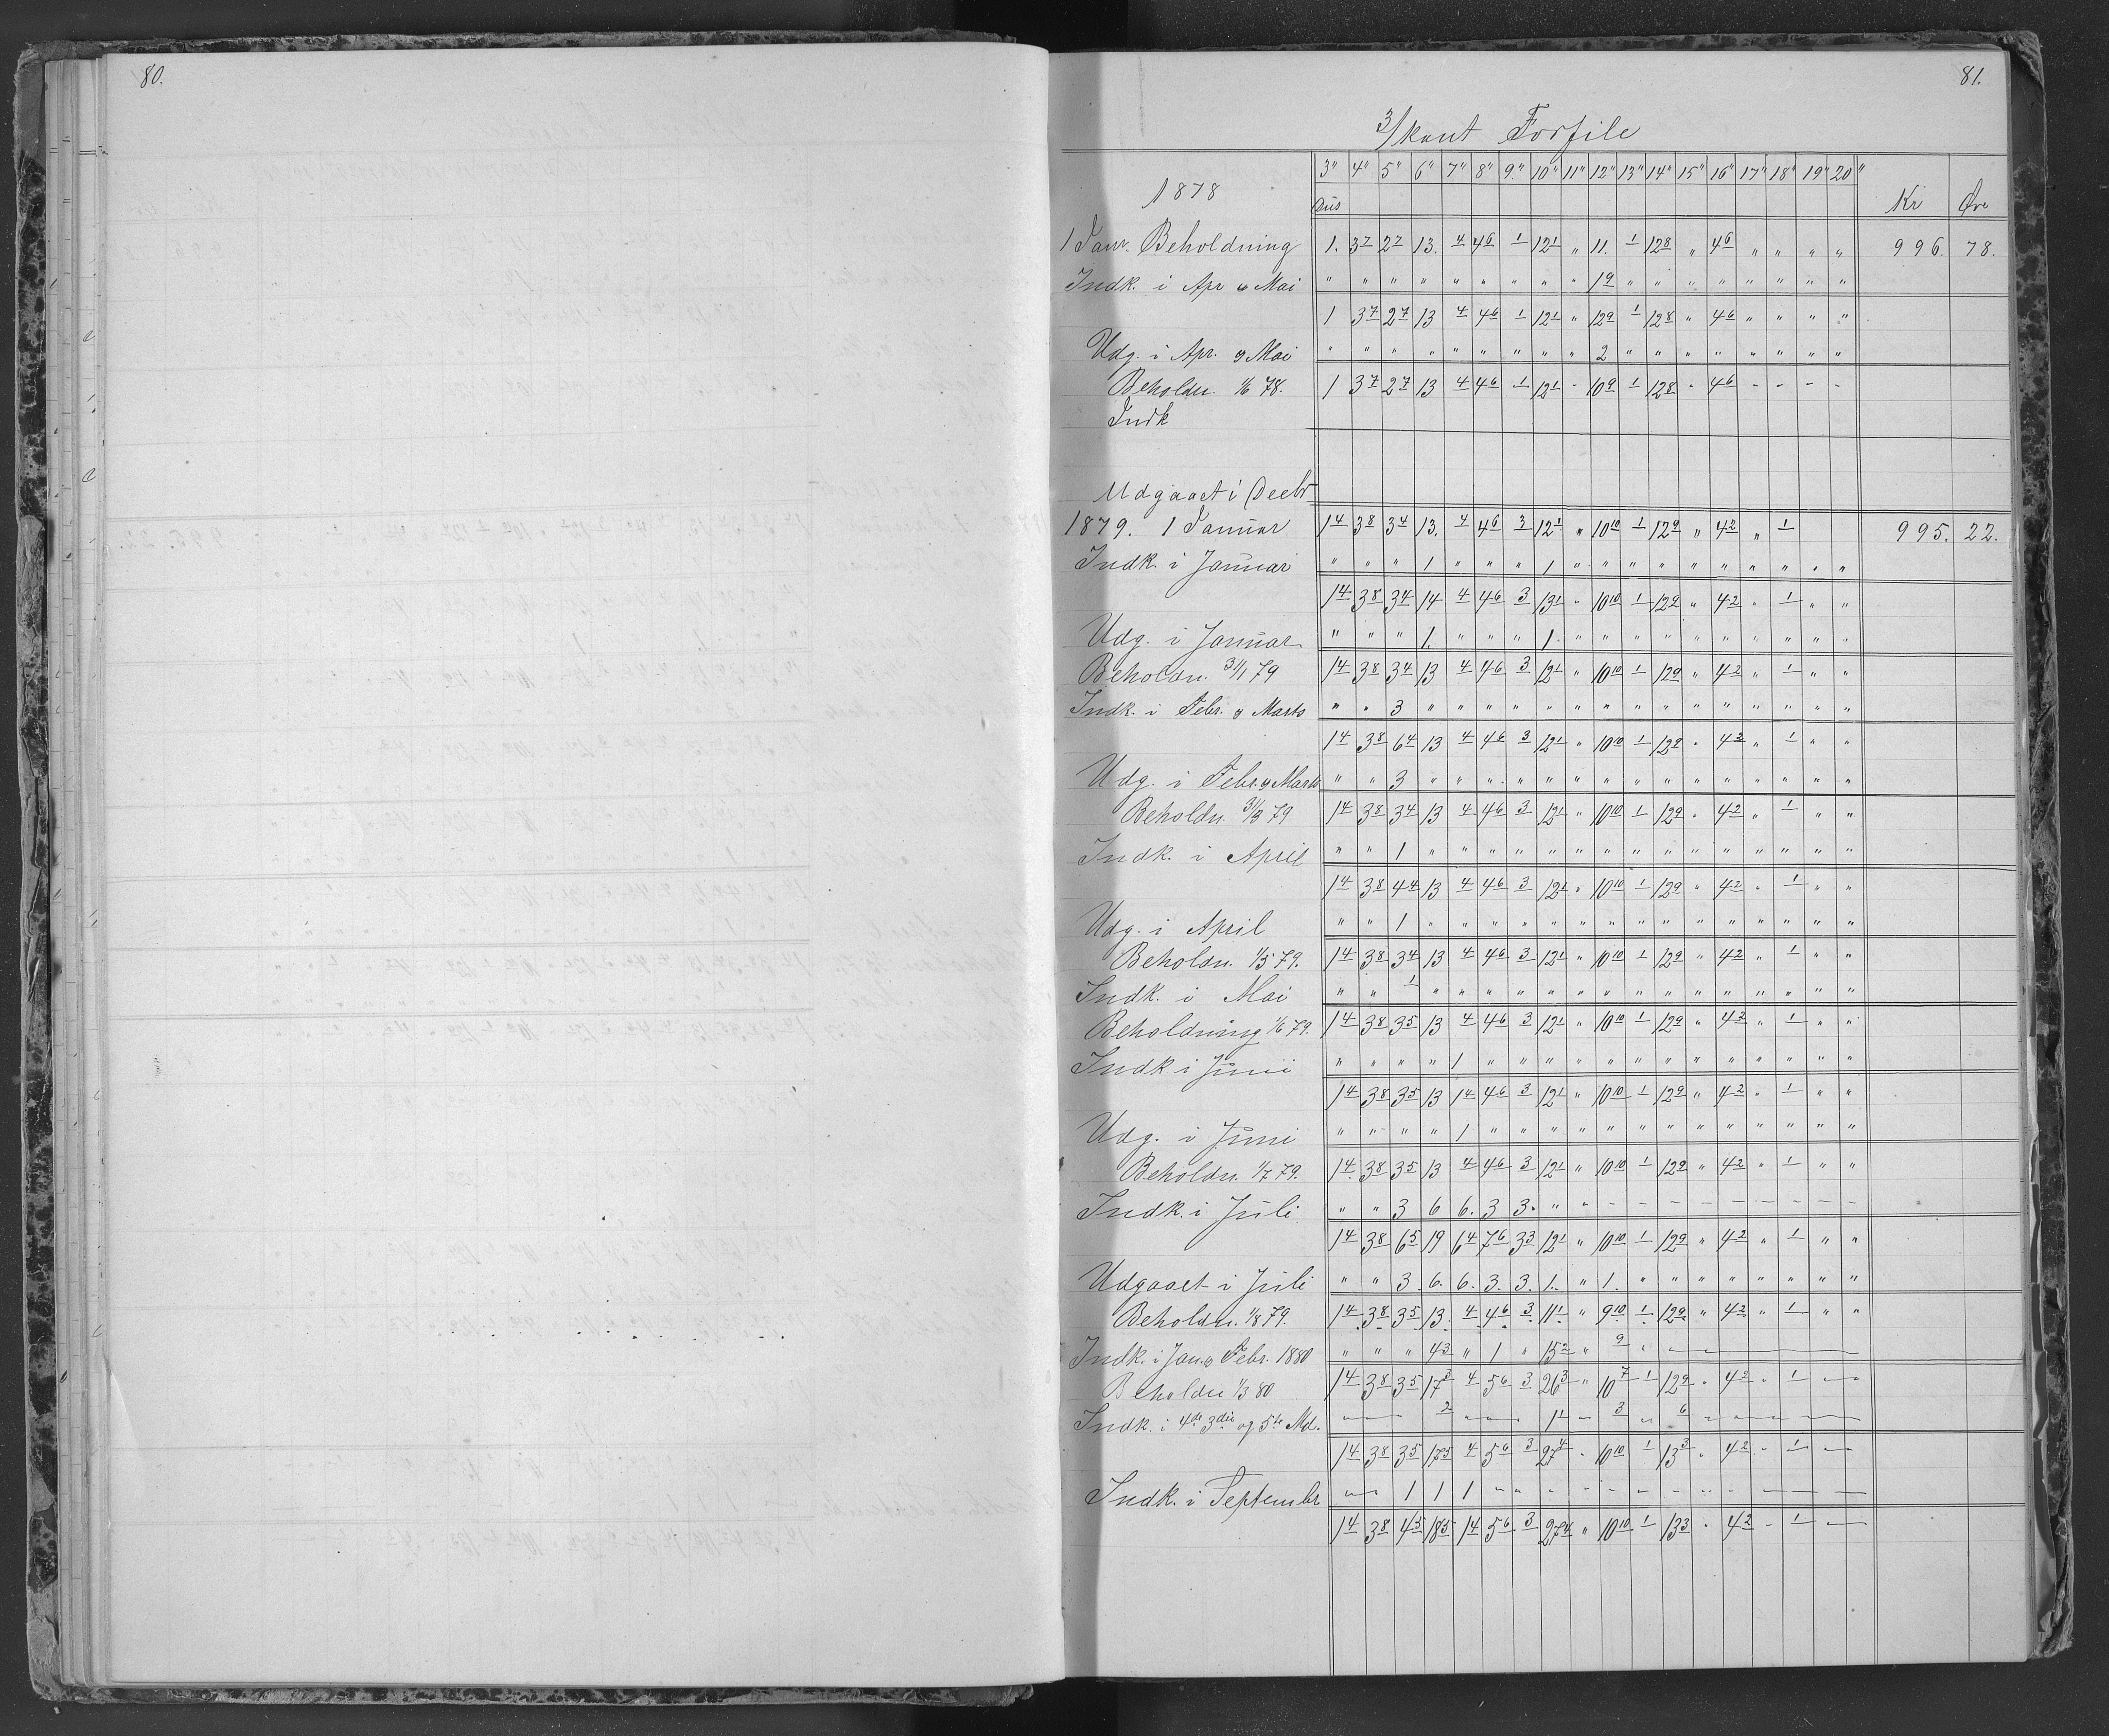 80.
81.
3/kant Forfile
3" 4" 5" 6" 7" 8" 9" 10" 11" 12" 13" 14" 15" 16" 17" 18" 19" 20"
1878 Dus Kr Øre
1 Janr. Beholdning 1. 3 7 2 7 13. 4 4 6 1 12 1 " 11. 1 12 8 " 4 6 " " " " 996. 78.
Indk. i Apr og Mai " " " " " " " " " 1 9 " " " " " " " "
1 3 7 2 7 13 4 4 6 1 12 1 " 12 9 1 12 8 " 4 6 " " " "
Udg. i Apr. og Mai " " " " " " " " " 2 " " " " " " " "
Beholdn. 1/6 78. 1 3 7 2 7 13 4 4 6 1 12 1 - 10 9 1 12 8 - 4 6 - - - -
Indk
Udgaaet i Decbr
1879. 1 Januar 1 4 3 8 3 4 13. 4 4 6 3 12 1 " 10 10 1 12 9 " 4 2 " 1 995. 22.
Indk. i Januar " " " 1 " " " 1 " " " " " " " " " "
1 4 3 8 3 4 14 4 4 6 3 13 1 " 10 10 1 12 9 " 4 2 " 1 " "
Udg. i Januar " " " 1. " " " 1. " " " " " " " " " "
Beholdn. 31/1 79 1 4 3 8 3 4 13 4 4 6 3 12 1 " 10 10 1 12 9 " 4 2 " 1 " "
Indk. i Febr. og Marts " " 3 " " " " " " " " " " " " " " "
1 4 3 8 6 4 13 4 4 6 3 12 1 " 10 10 1 12 9 " 4 2 " 1 " "
Udg. i Febr. og Marts " " 3 " " " " " " " " " " " " " " "
Beholdn. 31/3 79 1 4 3 8 3 4 13 4 4 6 3 12 1 " 10 10 1 12 9 " 4 2 " 1 " "
Indk. i April " " 1 " " " " " " " " " " " " " " "
1 4 3 8 4 4 13 4 4 6 3 12 1 " 10 10 1 12 9 " 4 2 " 1 " "
Udg. i April " " 1 " " " " " " " " " " " " " " "
Beholdn. 1/5 79. 1 4 3 8 3 4 13 4 4 6 3 12 1 " 10 10 1 12 9 " 4 2 " 1 " "
Indk. i Mai " " 1 " " " " " " " " " " " " " " "
Beholdning 1/6 79. 1 4 3 8 3 5 13 4 4 6 3 12 1 " 10 10 1 12 9 " 4 2 " 1 " "
Indk i Juni " " " " 1 " " " " " " " " " " " " "
1 4 3 8 3 5 13 1 4 4 6 3 12 1 " 10 10 1 12 9 " 4 2 " 1 " "
Udg. i Juni " " " " 1 " " " " " " " " " " " " "
Beholdn. 1/7 79. 1 4 3 8 3 5 13 4 4 6 3 12 1 " 10 10 1 12 9 " 4 2 " 1 " "
Indk. i Juli " " 3 6 6. 3 3. " " - - - - - - - - -
1 4 3 8 6 5 19 6 4 7 6 3 3 12 1 " 10 10 1 12 9 " 4 2 " 1 " "
Udgaaet i Juli " " 3. 6. 6. 3. 3. 1. " 1. " " " " " " " "
Beholdn. 1/8 79. 1 4 3 8 3 5 13. 4 4 6 3 11 1 " 9 10 1 12 9 " 4 2 " 1 " "
Indk. i Jan. og Febr. 1880 " " " 4 3 " 1 " 15 2 " 9 "
Beholdn 1/3 80 1 4 3 8 3 5 17 3 4 5 6 3 26 3 " 10 7 1 12 9 " 4 2 " 1
Indk. i 4de 3die og 5te Md. 2 1 1 3 6
1 4 3 8 3 5 17 5 4 5 6 3 27 4 - 10 10 1 13 3 " 4 2 - 1 -
Indk. i Septembr 1 1 1
1 4 3 8 4 5 18 5 1 4 5 6 3 27 4 " 10 10 1 13 3 - 4 2 - 1 -